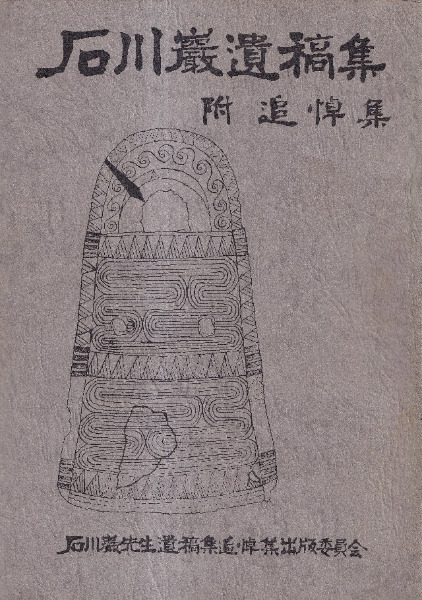 石川巖遺稿集
附 追悼集
石川巖先生遺稿集追悼集出版委員会